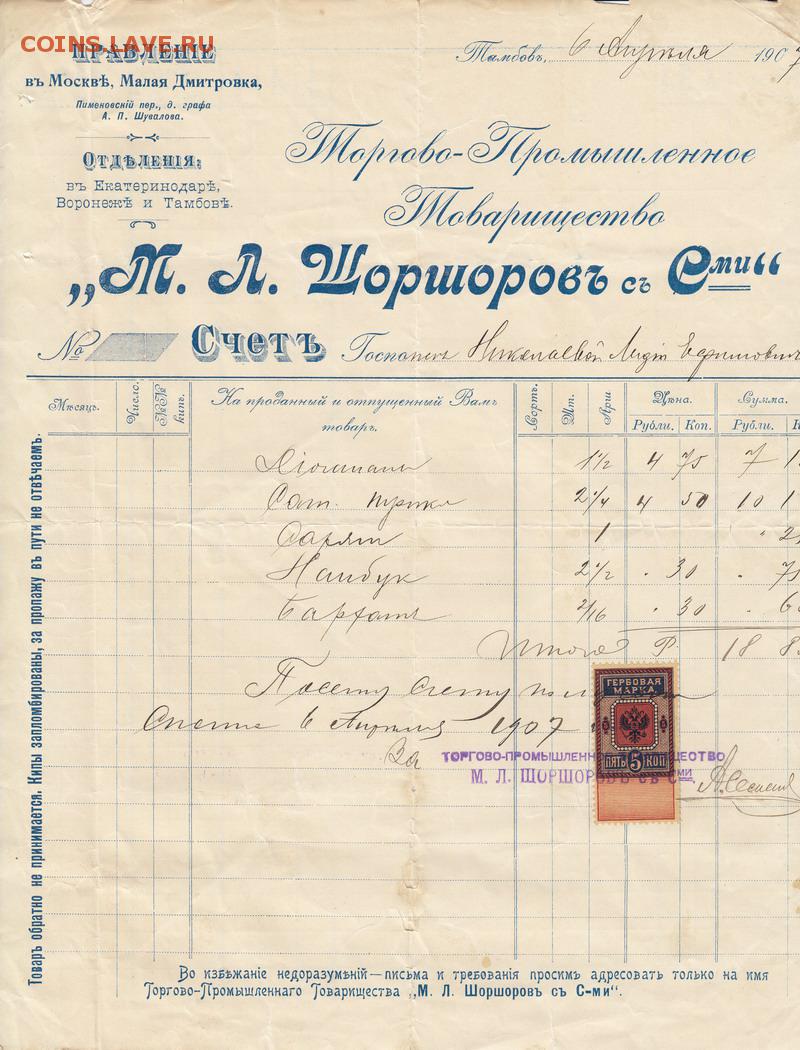 COINS.LAVE.RU
ПРАВЛЕНІЕ
въ Москвѣ, Малая Дмитровка,
Пименовскій пер., д. графа
А. П. Шувалова.
ОТДѢЛЕНІЯ:
въ Екатеринодарѣ,
Воронежѣ и Тамбовѣ.
Тамбовъ, 6 Апрѣля 1907
Торгово-Промышленное
Товарищество
„М. Л. Шоршоровъ съ С-ми“
№ Счетъ Николаевой Лидіи
Мѣсяцъ. Число. №№ кипъ. На проданный и отпущенный Вамъ товаръ. Сортъ. Шт. Арш Цѣна. Рубли. Коп. Сумма. Рубли.
1 1/2 4 75 7
Сат. 2 1/4 4 50 10
1
2 1/2 30
Бархатъ 2/16 30
Итого Р. 18
По сему счету
6 Апрѣля 1907
За
ТОРГОВО-ПРОМЫШЛЕННОЕ ТОВАРИЩЕСТВО
М. Л. ШОРШОРОВЪ СЪ С-МИ.
ГЕРБОВАЯ
МАРКА.
ПЯТЬ 5 КОП.
Товаръ обратно не принимается. Кипы запломбированы, за пропажу въ пути не отвѣчаемъ.
Во избѣжаніе недоразумѣній—письма и требованія просимъ адресовать только на имя
Торгово-Промышленнаго Товарищества „М. Л. Шоршоровъ съ С-ми“.